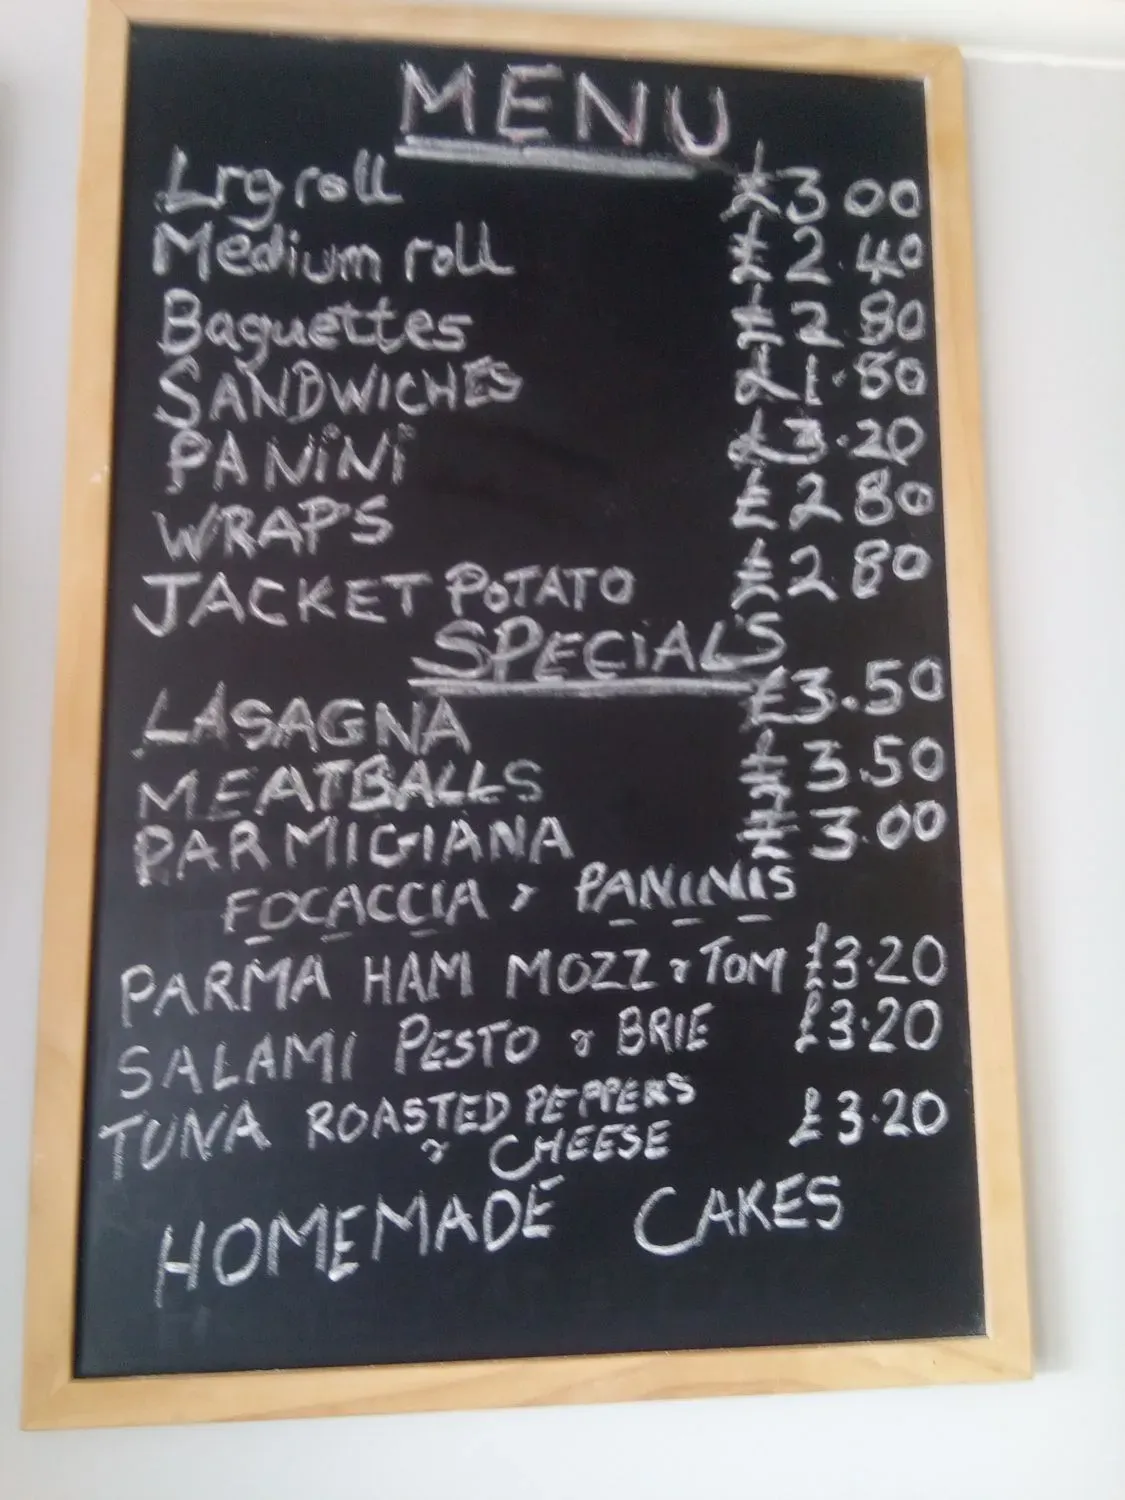 MENU
Lrg roll £3.00
Medium roll £2.40
Baguettes £2.80
SANDWICHES £1.80
PANiNi £3.20
WRAPS £2.80
JACKET POTATO £2.80
SPECiALS
LASAGNA £3.50
MEATBALLS £3.50
PARMIGIANA £3.00
FOCACCIA & PANINIS
PARMA HAM MOZZ & TOM £3.20
SALAMI PESTO & BRIE £3.20
TUNA ROASTED PEPPERS £3.20
& CHEESE
HOMEMADE CAKES